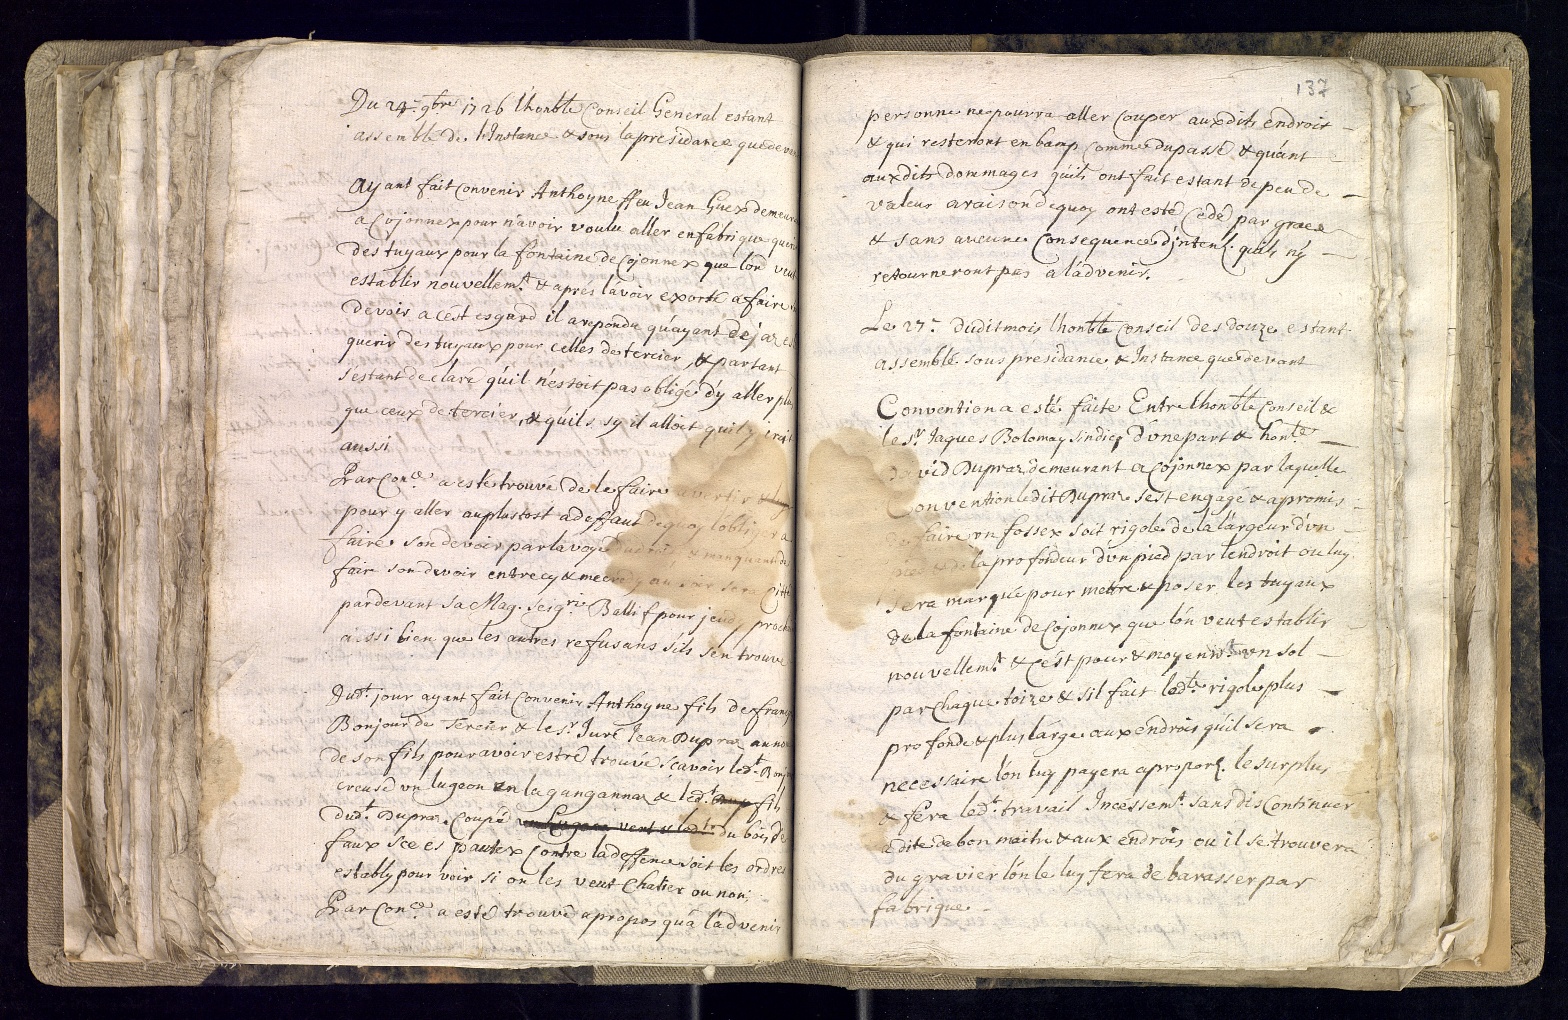 Du 24e 9bre 1726 l'honble Conseil General estant
assemblé de l'Instance & sous la presidance que devant
Ayant fait convenir Anthoyne ffeu Jean Guex demeurant
a Cojonnex pour n'avoir voulu aller en fabrique querir
des tuyaux pour la fontaine de Cojonnex que l'on veut
establir nouvellemt. & aprés l'avoir exorté a faire
devois a c'est esgard il a repondu qu'ayant déja esté
querir des tuyaux pour celles de tercier, & partant
s'estant declaré qu'il n'estoit pas obligé d'y aller plus
que ceux de tercier, & qu'ils sy il alloit qu'il y irait
aussi
Par Cone. a esté trouvé de le faire avertir
pour y aller au plustost a deffaut de quoy l'obligera
faire son devoir par la voye & manquant de
fair son devoir entrecy & mecredy au soir sera Citté
pardevant Sa Mag. Seigrie Ballif pour jeudy prochain
aussi bien que les autres refusans s'ils s'en trouve
Dudt. jour ayant fait convenir Anthoyne fils de françois
Bonjour de Tercier & le Sr. Juré Jean Dupraz au nom
de son fils, pour avoir estre trouvé scavoir ledt. Bonjour
creusé un lugeon en la gangannaz & ledt. fils
dudt. Dupraz Coupé du bois, de
faux scees pautex Contre la deffence soit les ordres
estably pour voir si on les veut chatier ou non;
Par Cone. a esté trouvé apropos qu'a l'advenir
137
personne ne pourra aller couper auxdits endroit
& qui resteront en bamp comme du passé & quant
auxdits dommages quils ont fait estant de peu de
valeur a raison dequoy ont esté Cedé par grace
& sans aucune Consequence d'intent. quils n'y
retourneront pas a l'advenir.
Le 27e. dudit mois l'honble Conseil des douze estant
assemblé sous presidance & Instance que devant
Convention a esté faite Entre l'honble Conseil &
le Sr. Jaques Bolomay sindiq d'une part & honle.
David Dupraz demeurant a Cojonnex par laquelle
Convention ledit Dupraz s'est engagé & a promis
de faire un fossex soit rigole de la largeur d'un
pied & de la profondeur d'un pied par l'endroit ou luy
sera marqué pour mettre & poser les tuyaux
de la fontaine de Cojonnex que l'on veut establir
nouvellemt. & c'est pour & moyent. un sol
par chaque toize & s'il fait ledte. rigole plus
profonde & plus large aux endrois qu'il sera
necessaire l'on luy payera a proport. le surplus,
& fera ledt. travail Incessemt. sans disContinuer
a dite de bon maitre & aux endrois ou il se trouvera
du gravier l'on le luy fera debarasser par
fabrique.